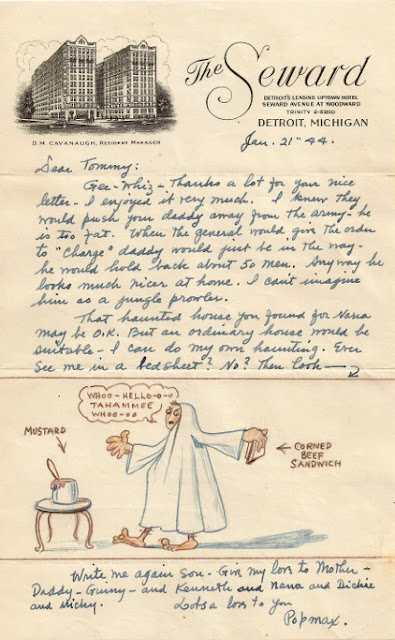 The Seward
DETROIT'S LEADING UPTOWN HOTEL
SEWARD AVENUE AT WOODWARD
TRINITY 2-5800
DETROIT, MICHIGAN
D. M. CAVANAUGH, RESIDENT MANAGER
Jan. 21" 44.
Dear Tommy:
Gee-Whiz - Thanks a lot for your nice
letter - I enjoyed it very much. I knew they
would push your daddy away from the army - he
is too fat. When the general would give the order
to "Charge" daddy would just be in the way -
he would hold back about 50 men. Any way he
looks much nicer at home. I can't imagine
him as a jungle prowler.
That haunted house you found for Nana
may be O.K. But an ordinary house would be
suitable - I can do my own haunting. Ever
see me in a bed sheet? No? Then look
WHOO-HELLO-O-O
TAHAMMEE
WHOO-OO
MUSTARD
CORNED
BEEF
SANDWICH
Write me again Son - Give my love to Mother -
Daddy - Gunny - and Kenneth and Nana and Dickie
and Micky. Lotsa love to you
Popmax.